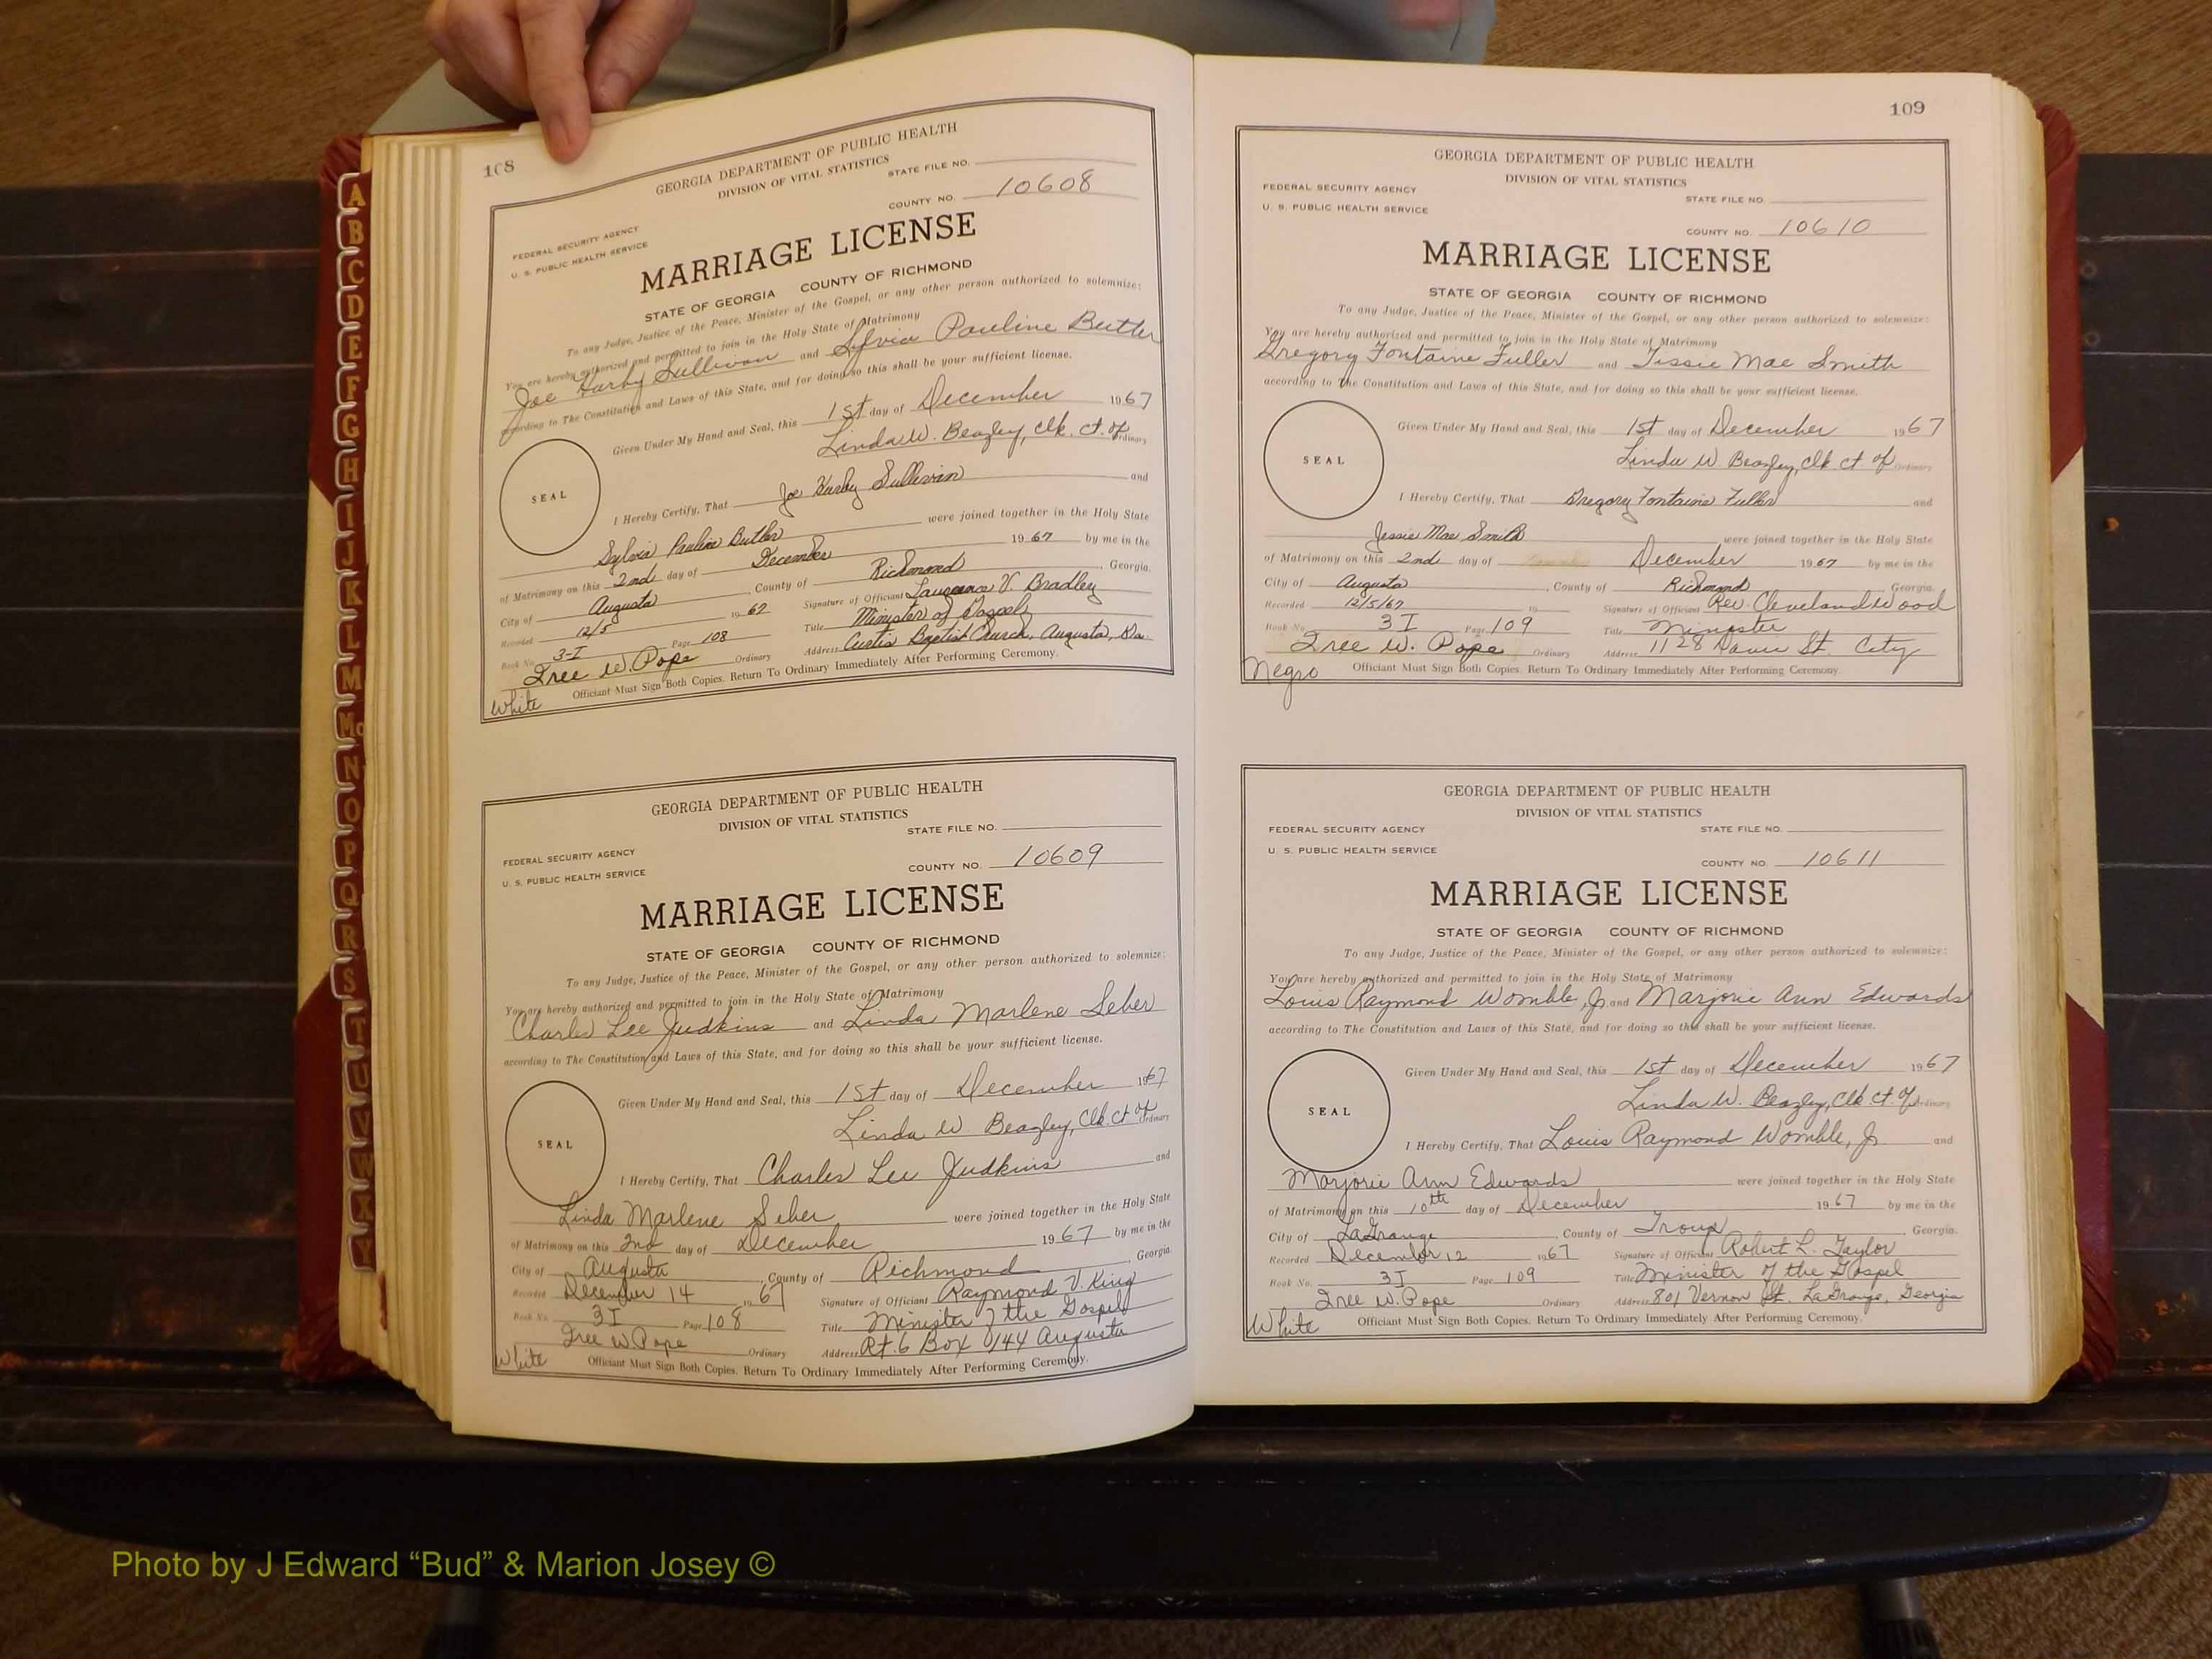 108
GEORGIA DEPARTMENT OF PUBLIC HEALTH
DIVISION OF VITAL STATISTICS
STATE FILE NO.
COUNTY NO. 10608
FEDERAL SECURITY AGENCY
U. S. PUBLIC HEALTH SERVICE
MARRIAGE LICENSE
STATE OF GEORGIA COUNTY OF RICHMOND
To any Judge, Justice of the Peace, Minister of the Gospel, or any other person authorized to solemnize:
You are hereby authorized and permitted to join in the Holy State of Matrimony
Joe Harby Sullivan and Sylvia Pauline Butler
according to The Constitution and Laws of this State, and for doing so this shall be your sufficient license.
Given Under My Hand and Seal, this 1st day of December 1967
Linda W. Beazley, Clk. Ct. of Ordinary
SEAL
I Hereby Certify, That Joe Harby Sullivan and
Sylvia Pauline Butler were joined together in the Holy State
of Matrimony on this 2nd day of December 1967 by me in the
City of Augusta, County of Richmond, Georgia.
Recorded 12/5 1967 Signature of Official Lawrence V. Bradley
Book No. 3-I Page 108 Title Minister of Gospel
Free W. Pope Ordinary Address Curtis Baptist Church, Augusta, Ga.
Officiant Must Sign Both Copies. Return To Ordinary Immediately After Performing Ceremony.
White
GEORGIA DEPARTMENT OF PUBLIC HEALTH
DIVISION OF VITAL STATISTICS
STATE FILE NO.
FEDERAL SECURITY AGENCY
COUNTY NO. 10609
U. S. PUBLIC HEALTH SERVICE
MARRIAGE LICENSE
STATE OF GEORGIA COUNTY OF RICHMOND
To any Judge, Justice of the Peace, Minister of the Gospel, or any other person authorized to solemnize:
You are hereby authorized and permitted to join in the Holy State of Matrimony
Charles Lee Judkins and Linda Marlene Seber
according to The Constitution and Laws of this State, and for doing so this shall be your sufficient license.
Given Under My Hand and Seal, this 1st day of December 1967
Linda W. Beazley, Clk. Ct of Ordinary
SEAL
I Hereby Certify, That Charles Lee Judkins and
Linda Marlene Seber were joined together in the Holy State
of Matrimony on this 2nd day of December 1967 by me in the
City of Augusta, County of Richmond Georgia.
Recorded December 14 1967 Signature of Officiant Raymond V. King
Book No. 3I Page 108 Title Minister of the Gospel
Free W Pope Ordinary Address Rt. 6 Box 144 Augusta
White Officiant Must Sign Both Copies. Return To Ordinary Immediately After Performing Ceremony.
109
GEORGIA DEPARTMENT OF PUBLIC HEALTH
DIVISION OF VITAL STATISTICS
FEDERAL SECURITY AGENCY
STATE FILE NO.
U. S. PUBLIC HEALTH SERVICE
COUNTY NO. 10610
MARRIAGE LICENSE
STATE OF GEORGIA COUNTY OF RICHMOND
To any Judge, Justice of the Peace, Minister of the Gospel, or any other person authorized to solemnize:
You are hereby authorized and permitted to join in the Holy State of Matrimony
Gregory Fontaine Fuller and Jessie Mae Smith
according to the Constitution and Laws of this State, and for doing so this shall be your sufficient license.
Given Under My Hand and Seal, this 1st day of December 1967
Linda W Beazley, Clk Ct of Ordinary
SEAL
I Hereby Certify, That Gregory Fontaine Fuller and
Jessie Mae Smith were joined together in the Holy State
of Matrimony on this 2nd day of December 1967 by me in the
City of Augusta, County of Richmond Georgia.
Recorded 12/5/67 19 Signature of Official Rev. Cleveland Wood
Book No. 3I Page 109 Title Minister
Free W. Pope Ordinary Address 1128 St. City
Negro Officiant Must Sign Both Copies. Return To Ordinary Immediately After Performing Ceremony.
GEORGIA DEPARTMENT OF PUBLIC HEALTH
DIVISION OF VITAL STATISTICS
FEDERAL SECURITY AGENCY
STATE FILE NO.
U. S. PUBLIC HEALTH SERVICE
COUNTY NO. 10611
MARRIAGE LICENSE
STATE OF GEORGIA COUNTY OF RICHMOND
To any Judge, Justice of the Peace, Minister of the Gospel, or any other person authorized to solemnize:
You are hereby authorized and permitted to join in the Holy State of Matrimony
Louis Raymond Womble, Jr. and Marjorie Ann Edwards
according to The Constitution and Laws of this State, and for doing so this shall be your sufficient license.
Given Under My Hand and Seal, this 1st day of December 1967
Linda W. Beazley, Clk Ct. of Ordinary
SEAL
I Hereby Certify, That Louis Raymond Womble, Jr and
Marjorie Ann Edwards were joined together in the Holy State
of Matrimony on this 10th day of December 1967 by me in the
City of LaGrange, County of Troup, Georgia.
Recorded December 12 1967 Signature of Officiant Robert L. Taylor
Book No. 3I Page 109 Title Minister of the Gospel
Free W. Pope Ordinary Address 801 Vernon St. LaGrange, Georgia
White Officiant Must Sign Both Copies. Return To Ordinary Immediately After Performing Ceremony.
A
B
C
D
E
F
G
H
I
J
K
L
M
Mc
N
O
P
Q
R
S
T
U
V
W
X
Y
Photo by J Edward “Bud” & Marion Josey ©